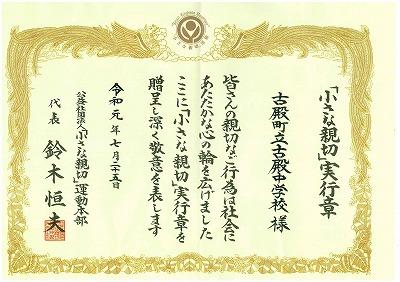 「小さな親切」実行章
古殿町立古殿中学校 様
皆さんの親切なご行為は社会に
あたたかな心の輪を広げました
ここに「小さな親切」実行章を
贈呈し深く敬意を表します
令和元年七月二十五日
公益社団法人「小さな親切」運動本部
代表 鈴木恒夫